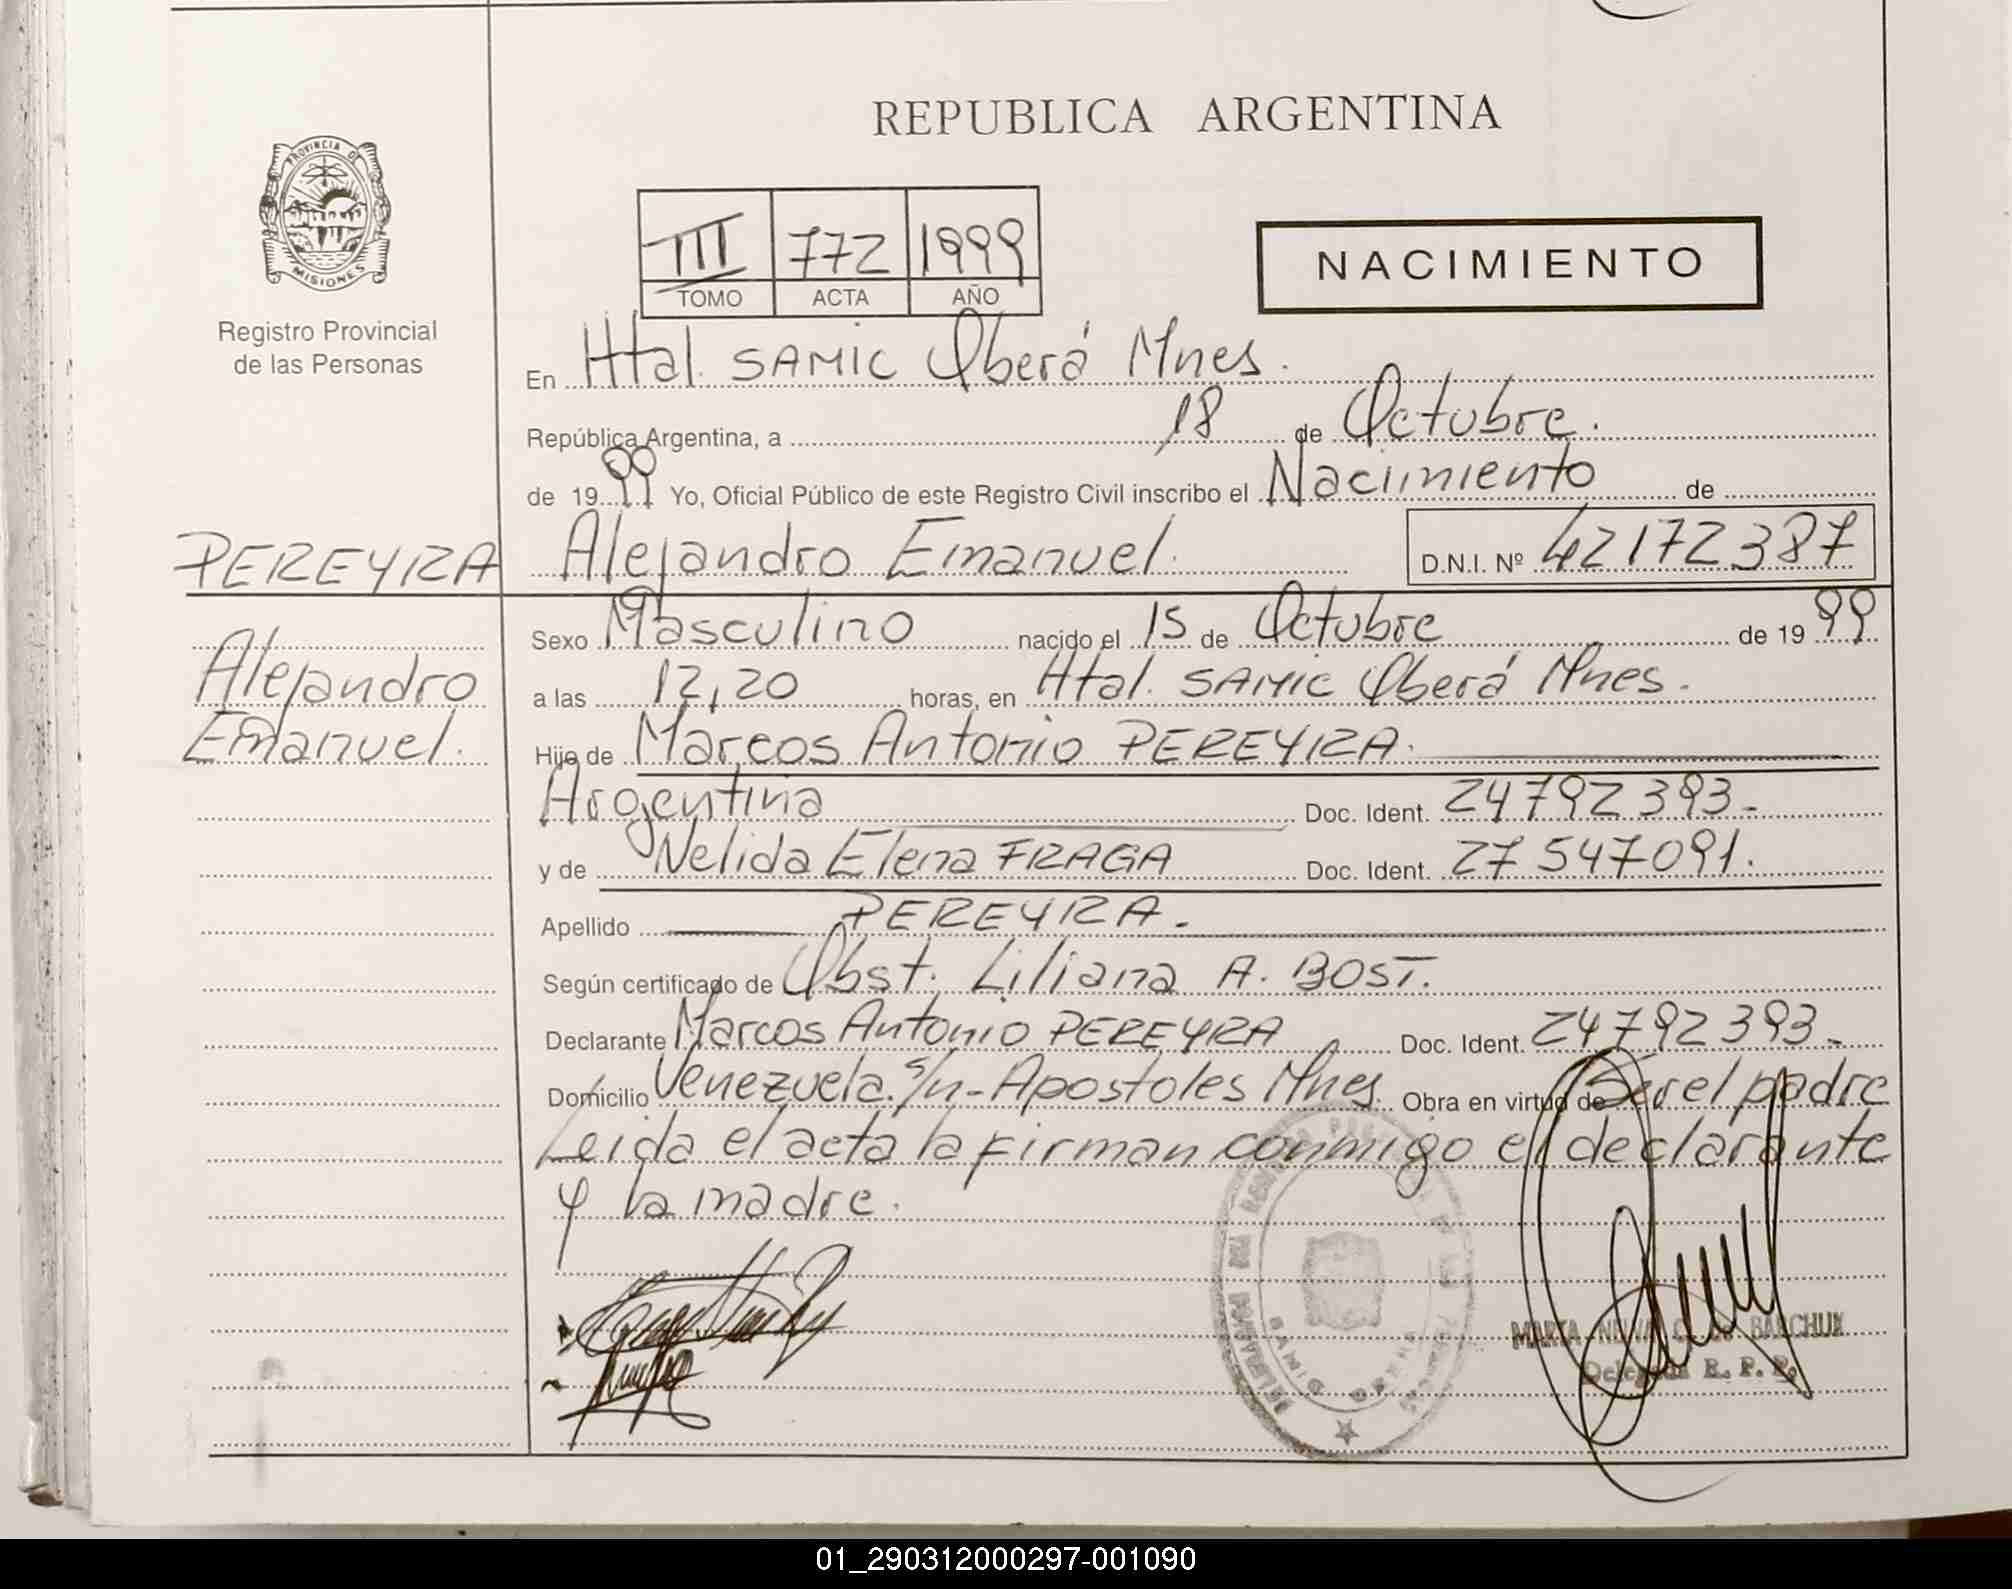 REPUBLICA ARGENTINA
PROVINCIA DE
MISIONES
Registro Provincial
de las Personas
III 772 1999
TOMO ACTA AÑO
NACIMIENTO
En Htal. SAMIC Oberá Mnes.
República Argentina, a 18 de Octubre.
de 1999 Yo, Oficial Público de este Registro Civil inscribo el Nacimiento de
PEREYRA
Alejandro Emanuel. D.N.I. Nº 42172387
Alejandro
Emanuel.
Sexo Masculino nacido el 15 de Octubre de 1999
a las 12,20 horas, en Htal. SAMIC Oberá Mnes.
Hijo de Marcos Antonio PEREYRA.
Argentina Doc. Ident. 24792393-
y de Nelida Elena FRAGA Doc. Ident. 27547091.
Apellido PEREYRA.
Según certificado de Obst. Liliana A. BOST.
Declarante Marcos Antonio PEREYRA Doc. Ident. 24792393-
Domicilio Venezuela s/n-Apostoles Mnes. Obra en virtud de Ser el padre
Leida el acta la firman conmigo el declarante
y la madre.
MARTA BARCHUK
Delegada R. P. P.
01_290312000297-001090